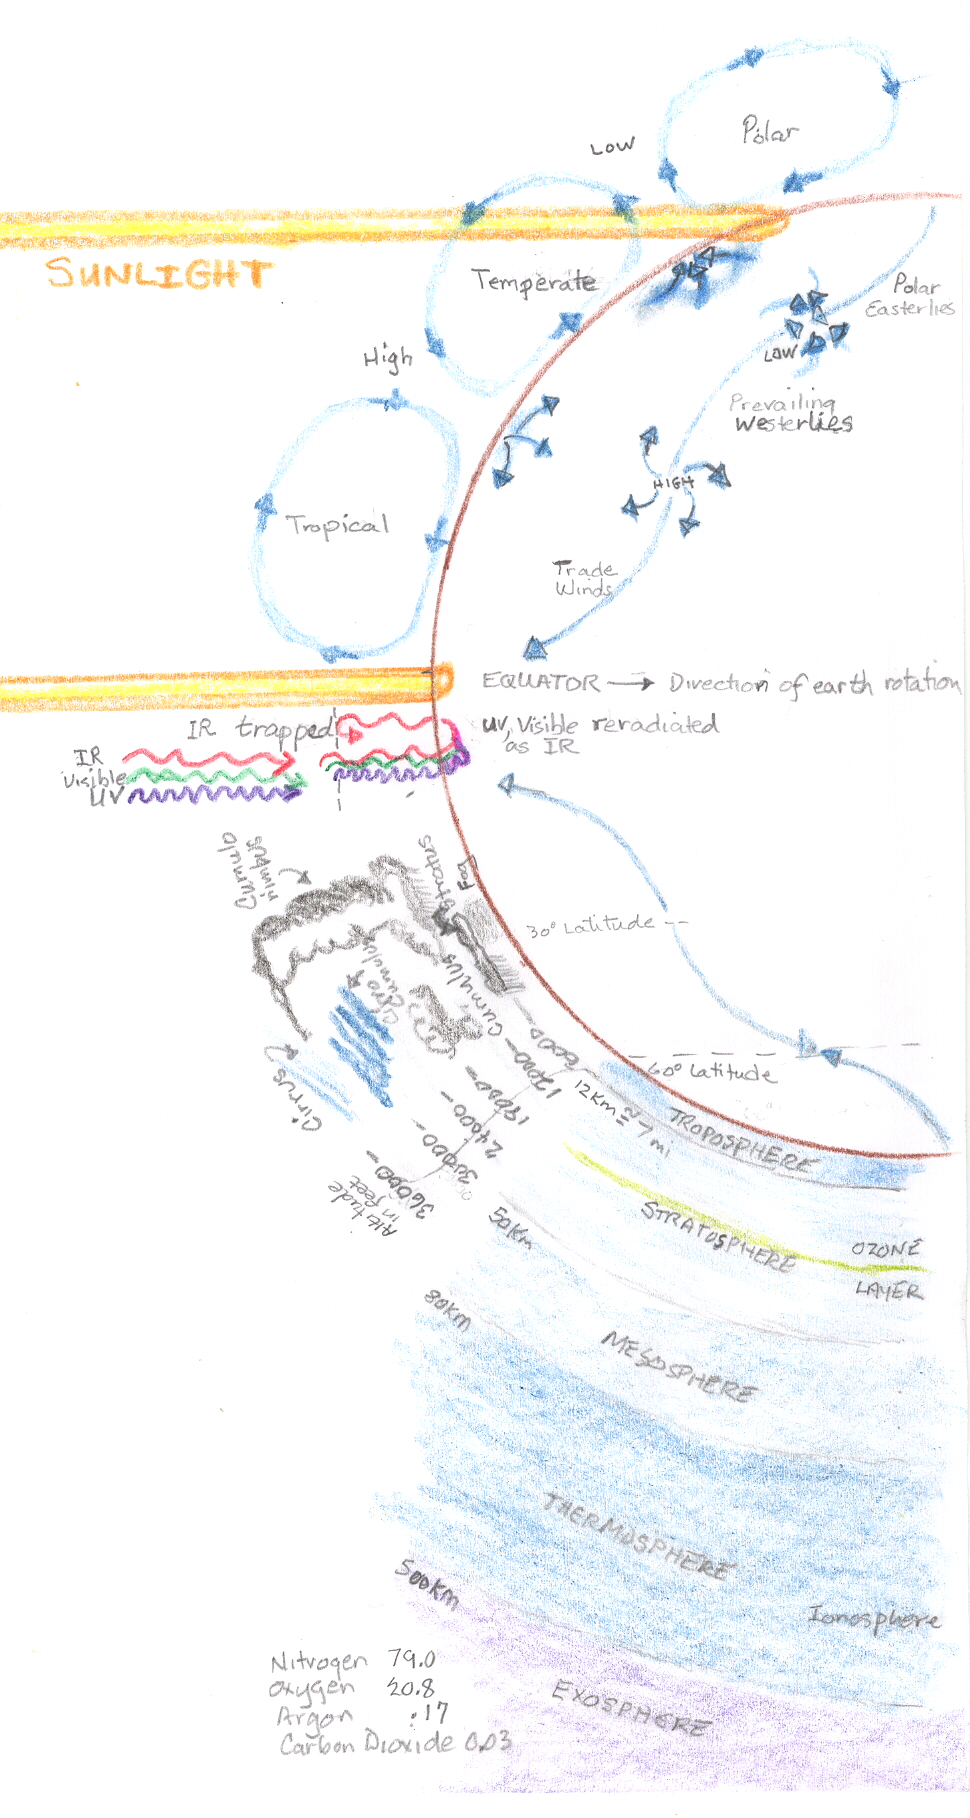 Polar
LOW
SUNLIGHT
Temperate
Polar
Easterlies
High
LOW
Prevailing
Westerlies
HIGH
Tropical
Trade
Winds
EQUATOR → Direction of earth rotation
IR trapped
UV, Visible reradiated
as IR
IR
Visible
UV
Cumulo
nimbus
Stratus
Fog
30° Latitude
Cirro
Cumulus
Cumulus
Cirrus
6000
12000
18000
24000
30000
36000
Altitude
in feet
60° Latitude
12Km ≅ 7 mi
TROPOSPHERE
STRATOSPHERE
50Km
OZONE
LAYER
80Km
MESOSPHERE
THERMOSPHERE
500Km
Ionosphere
EXOSPHERE
Nitrogen 79.0
Oxygen 20.8
Argon .17
Carbon Dioxide 0.03